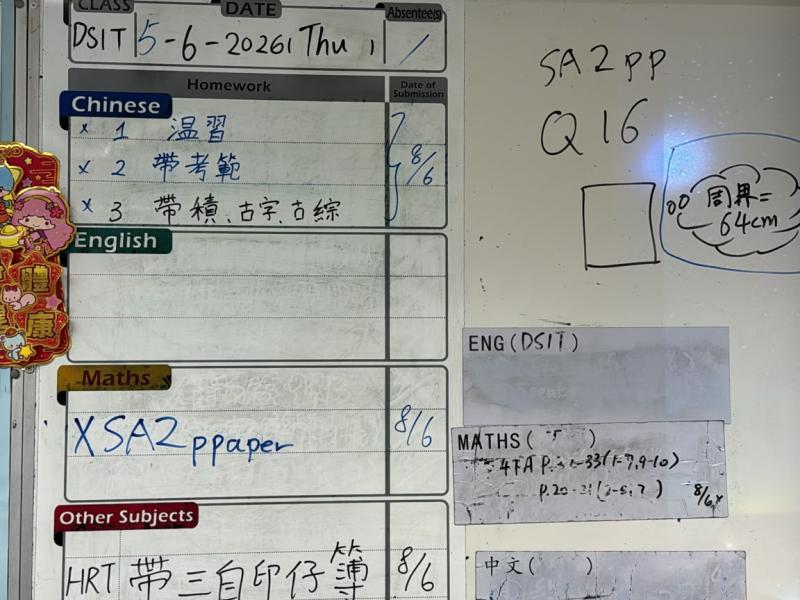 CLASS DATE Absentee(s)
DSIT 5-6-2026 Thu /
Homework Date of Submission
Chinese
x 1 温習
x 2 帶考範 8/6
x 3 帶積、古字、古綜
English
Maths
X SA2 ppaper 8/6
Other Subjects
HRT 帶三自印仔簿 8/6
SA2 pp
Q16
周界=
64cm
ENG(DSIT)
MATHS( )
4TA P. -33(1-7,9-10)
8/6
中文( )
體
康